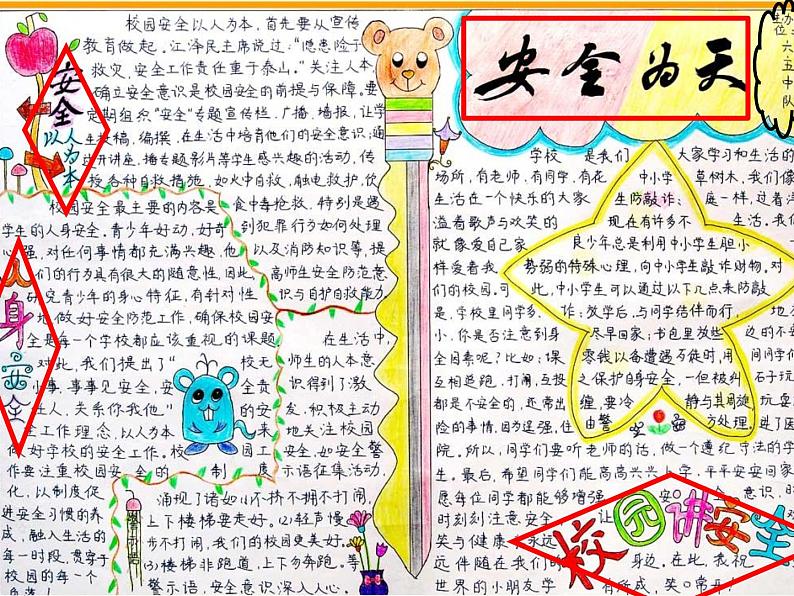 安全为天
六
五
中
队
安全
以人为本
校园安全以人为本，首先要从宣传
教育做起。江泽民主席说过："隐患险于
救灾，安全工作责任重于泰山。"关注人本
确立安全意识是校园安全的前提与保障。要
定期组织"安全"专题宣传栏，广播，墙报，让学
生投稿，编撰，在生活中培育他们的安全意识；通
过开讲座，播专题影片等学生感兴趣的活动，传
授各种自救措施，如火中自救，触电救护，饮
食中毒抢救，特别是遇
到犯罪行为如何处理
以及消防知识等，提
高师生安全防范意
识与自护自救能力。
人身安全
校园安全最主要的内容是
学生的人身安全。青少年好动，好奇
心强，对任何事情都充满兴趣，他
们的行为具有很大的随意性，因此，
研究青少年的身心特征，有针对性
地做好安全防范工作，确保校园安
全是每一个学校都应该重视的课题
对此，我们提出了"校无
小事，事事见安全，安全责
任人，关系你我他。"的安
全工作理念，以人为本来
做好学校的安全工作。校
园安全的制度
作要注重
化，以制度促
进安全习惯的养
成，融入生活的
每一时段，贯穿于
校园的每一个
在生活中，
师生的人本意
识得到了激
发，积极主动
地关注校园
安全，如安全警
示语征集活动，
涌现了诸如(1)不挤不拥不打闹，
上下楼梯要走好。(2)轻声慢
步不打闹，我们的校园更美好。
(3)楼梯非跑道，上下勿奔跑。等
警示语，安全意识深入人心。
学校是我们大家学习和生活的
场所，有老师，有同学，有花草树木，我们像
生活在一个快乐的大家庭一样，过着洋
溢着歌声与欢笑的生活，我们
就像爱自己家
样爱着我
们的校园。可
是，学校里同学多，
小，你是否注意到身边的不安
全因素呢？比如：课间同学们
互相追跑，打闹，互投石子玩
都是不安全的，还常出
险的事情，因为逞强，住进了医
院。所以，同学们要听老师的话，做一个遵纪守法的学
生。最后，希望同学们能高高兴兴上学，平平安安回家
愿每位同学都能够增强安全意识，时
时刻刻注意安全，让
笑与健康永远
远伴随在我们的身边。在此，我祝
世界的小朋友学有所成，笑口常开！
中小学
生防敲诈：
现在有许多不
良少年总是利用中小学生胆小
势弱的特殊心理，向中小学生敲诈财物。对
此，中小学生可以通过以下几点来防敲
诈：放学后，与同学结伴而行，
尽早回家；书包里放些
零钱以备遭遇不侥时，用
之保护自身安全，一但被纠
缠，要冷静与其周旋，
由警方处理。
校园讲安全